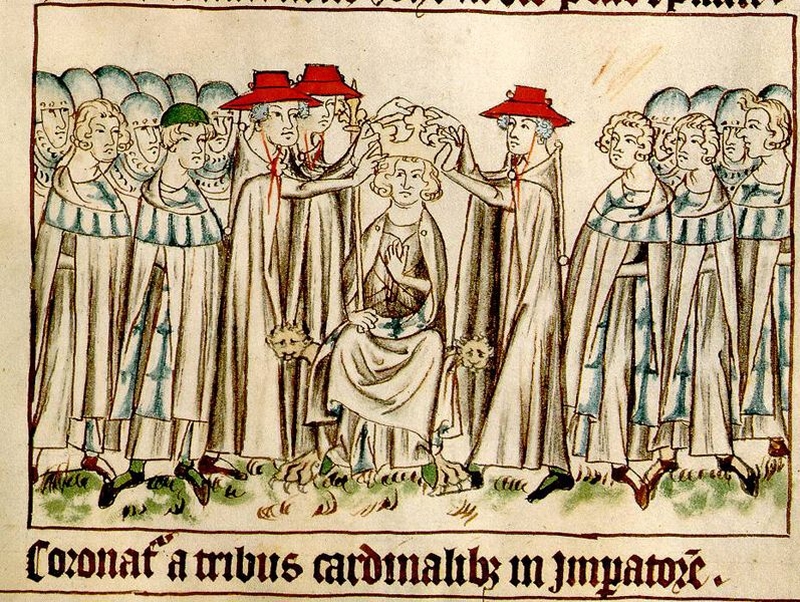 Coronat᷑ a tribus cardinalibꝫ in Jmꝑatorē.